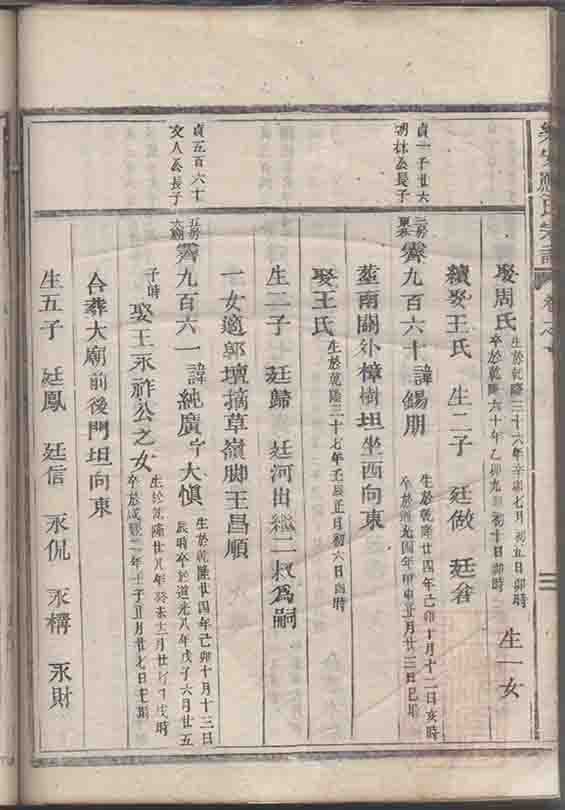 娶周氏 生於乾隆三十六年辛卯七月初五日卯時 生一女
卒於乾隆六十年乙卯九月初十日卯時
續娶王氏 生二子 廷做
貞一千廿六
胡林公長子
齊九百六十 諱錫朋 生於乾隆廿四年己卯十月十二日亥時
卒於道光四年甲申五月廿三日巳時
塟南關外樟樹坦坐西向東
娶王氏 生於乾隆三十七年壬辰正月初六日酉時
生二子 廷歸 廷河出繼二叔爲嗣
一女適郭壇摘草嶺脚王昌順
貞五百六十
文人公長子
五房
六廟
齊九百六一 諱純廣字大慎 生於乾隆廿四年己卯十月十三日
辰時卒於道光八年戊子六月廿五
子時
娶王永祚公之女 生於乾隆廿八年癸未十二月廿 日戌時
卒於咸豐二年壬子五月廿七日 時
合葬大廟前後門坦向東
生五子 廷鳳 廷信 永侃 永構 永財